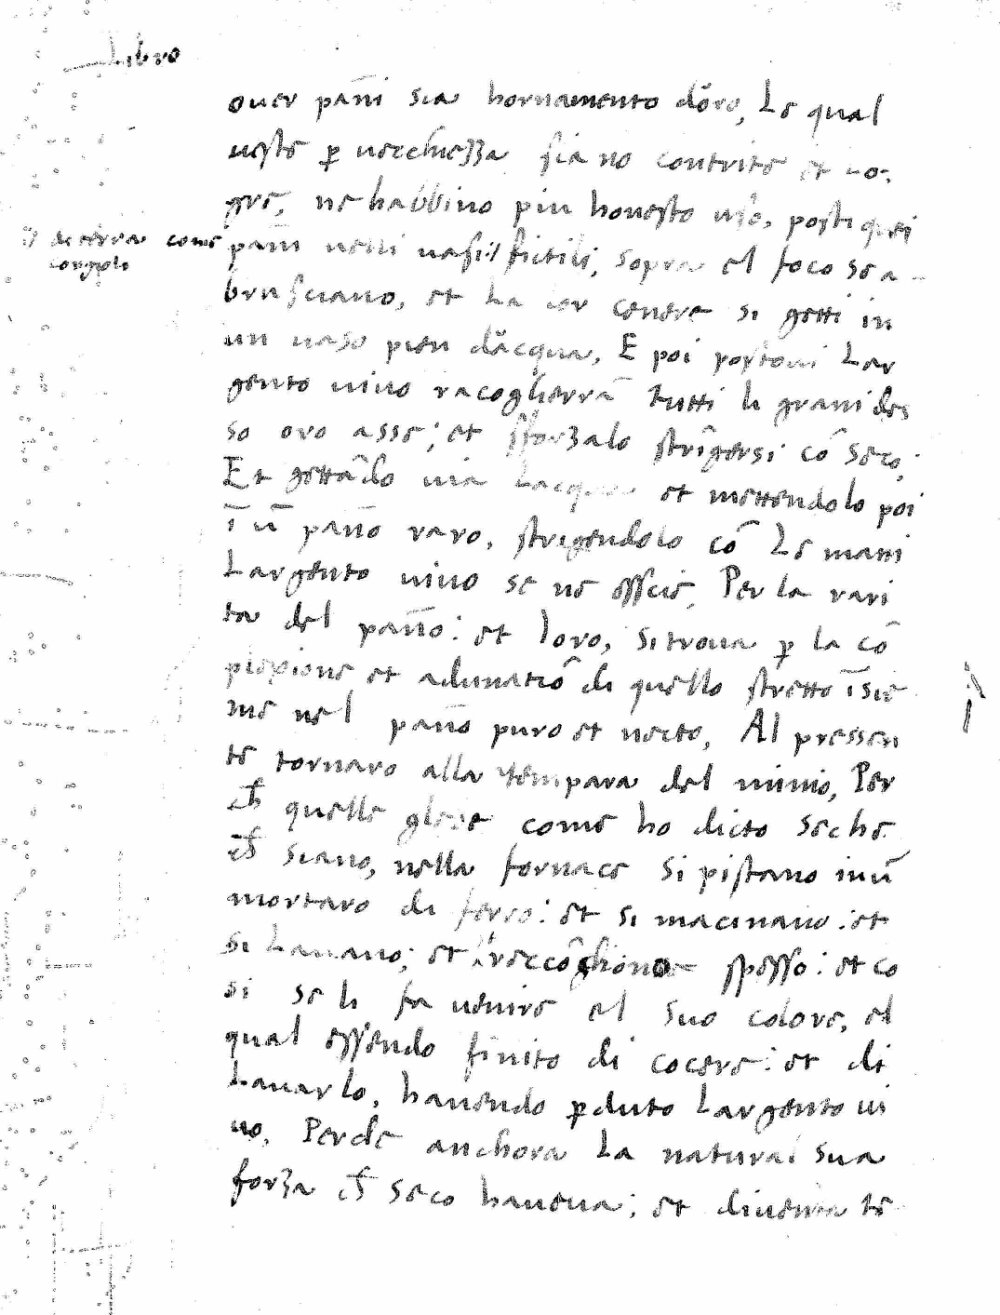 Libro
ouer pañi sia hornamento dõro, Le qual
ueste ꝑ uecchiezza siano contrite et lo-
gre, ne habbino piu honesto uso, posti quei
pañi nelli uasi fictili, sopra el foco se a-
di terra come
congioli
brusciano, et La lor cenere si getti in
un uaso pien dãcqua, E poi postoui Lar
gento uiuo racoglierrà tutti li grani des
so oro asse; et sforzalo strĩgersi cõ seco;
Et gettãdo uia Lacqua et mettendolo poi
ĩ ũ pãno raro, strigendolo cõ Le mani
Largento uiuo se ne esscie, Per la rari
ta del pãno: et loro, si troua ꝑ la cõ
ṗssione et adunatiõ di quello stretto ĩsie
me nel pãno puro et necto, Al pressen
te tornaro alla tempara del minio, Per
cħ quelle glebe come ho dicto seche
cħ siano, nella fornace si pistano in ũ
mortaro di ferro: et si macinano: et
si Lauano; et reccõgliono spesso: et co
si se li fa uenire el suo colore, el
qual essendo finito di cocere: et di
Lauarlo, hauendo ꝑduto Largento ui
uo, Perde anchora La natural sua
forza cħ seco haueua; et diuenta te